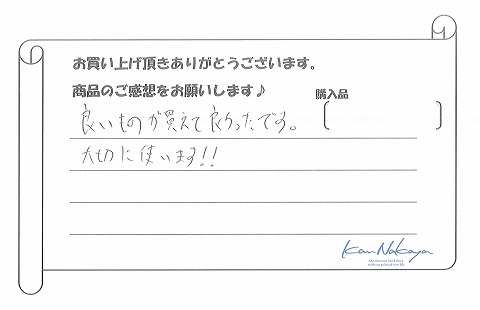 お買い上げ頂きありがとうございます。
商品のご感想をお願いします♪
購入品
良いものが買えて良かったです。
大切に使います!!
Kan Nakaya